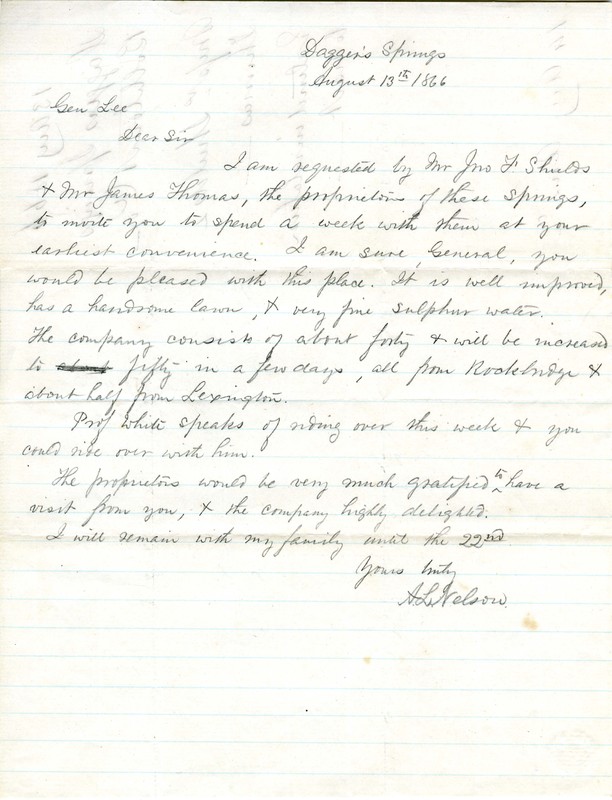 Dagger's Springs
August 13th 1866
Gen Lee
Dear Sir
I am requested by Mr Jno F Shields
& Mr James Thomas, the proprietors of these Springs,
to invite you to spend a week with them at your
earliest convenience. I am sure, General, you
would be pleased with this place. It is well improved,
has a handsome lawn, & very fine sulphur water.
The company consists of about forty & will be increased
to about fifty in a few days, all from Rockbridge &
about half from Lexington.
Prof White speaks of riding over this week & you
could ride over with him.
The proprietors would be very much gratified to have a
visit from you, & the company highly delighted.
I will remain with my family until the 22nd
Yours truly
A. L. Nelson.